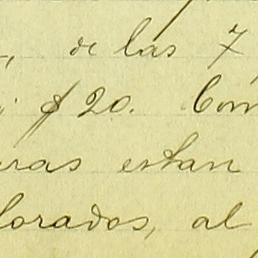 , de las 7
$20. Com
ras estan
lorados, al